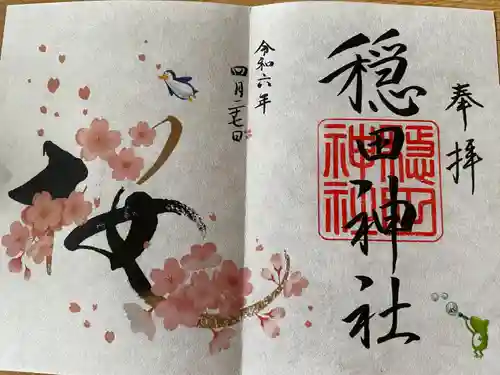 奉拝
穏田神社
穏田
神社
令和六年
四月二七日
桜